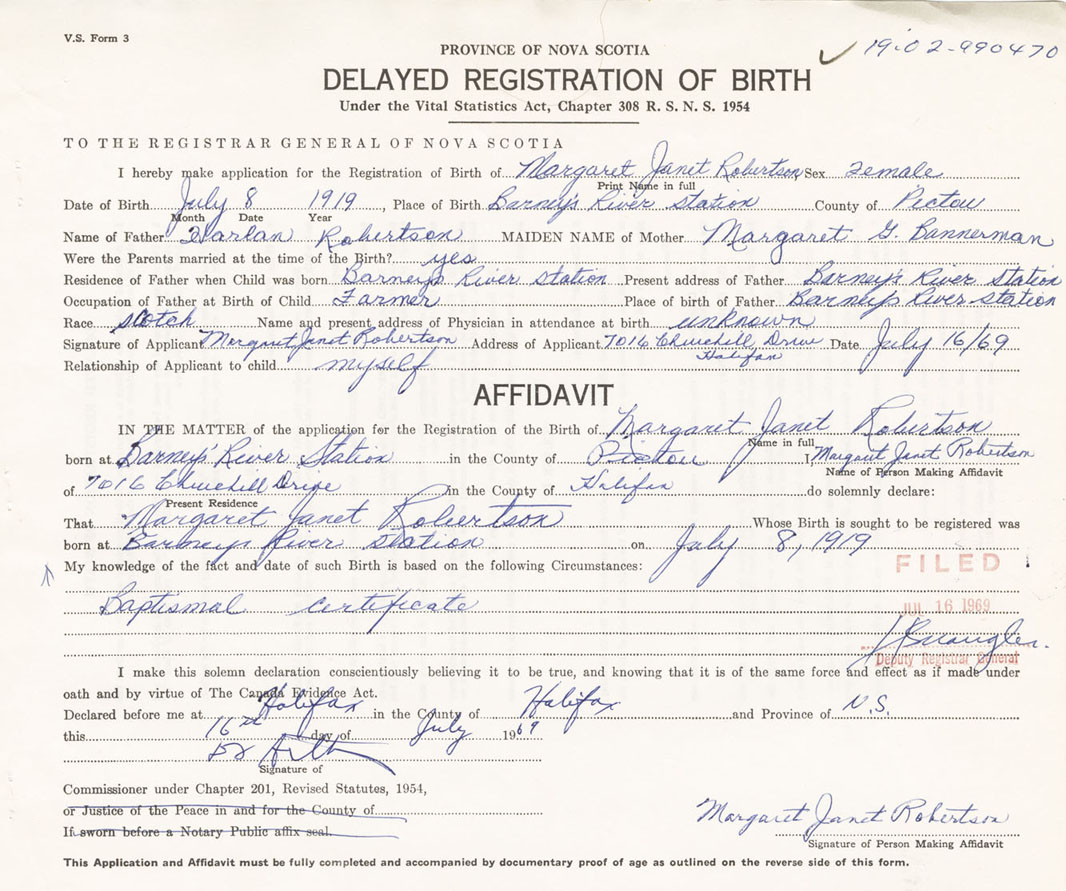 V.S. Form 3
19-02-990470
PROVINCE OF NOVA SCOTIA
DELAYED REGISTRATION OF BIRTH
Under the Vital Statistics Act, Chapter 308 R. S. N. S. 1954
TO THE REGISTRAR GENERAL OF NOVA SCOTIA
I hereby make application for the Registration of Birth of Margaret Janet Robertson Sex Female
Print Name in full
Date of Birth July 8 1919, Place of Birth Barney's River Station County of Pictou
Month Date Year
Name of Father Harlan Robertson MAIDEN NAME of Mother Margaret G. Bannerman
Were the Parents married at the time of the Birth? yes
Residence of Father when Child was born Barney's River Station Present address of Father Barney's River Station
Occupation of Father at Birth of Child Farmer Place of birth of Father Barney's River Station
Race Scotch Name and present address of Physician in attendance at birth unknown
Signature of Applicant Margaret Janet Robertson Address of Applicant 7016 Churchill Drive Date July 16/69
Halifax
Relationship of Applicant to child myself
AFFIDAVIT
IN THE MATTER of the application for the Registration of the Birth of Margaret Janet Robertson
Name in full
born at Barney's River Station in the County of Pictou I, Margaret Janet Robertson
Name of Person Making Affidavit
of 7016 Churchill Drive in the County of Halifax do solemnly declare:
Present Residence
That Margaret Janet Robertson Whose Birth is sought to be registered was
born at Barneys River Station on July 8, 1919
My knowledge of the fact and date of such Birth is based on the following Circumstances:
FILED
Baptismal certificate
JUL 16 1969
Deputy Registrar General
I make this solemn declaration conscientiously believing it to be true, and knowing that it is of the same force and effect as if made under
oath and by virtue of The Canada Evidence Act.
Declared before me at Halifax in the County of Halifax and Province of N.S.
this 16th day of July 1969
Signature of
Commissioner under Chapter 201, Revised Statutes, 1954,
or Justice of the Peace in and for the County of
If sworn before a Notary Public affix seal.
Margaret Janet Robertson
Signature of Person Making Affidavit
This Application and Affidavit must be fully completed and accompanied by documentary proof of age as outlined on the reverse side of this form.